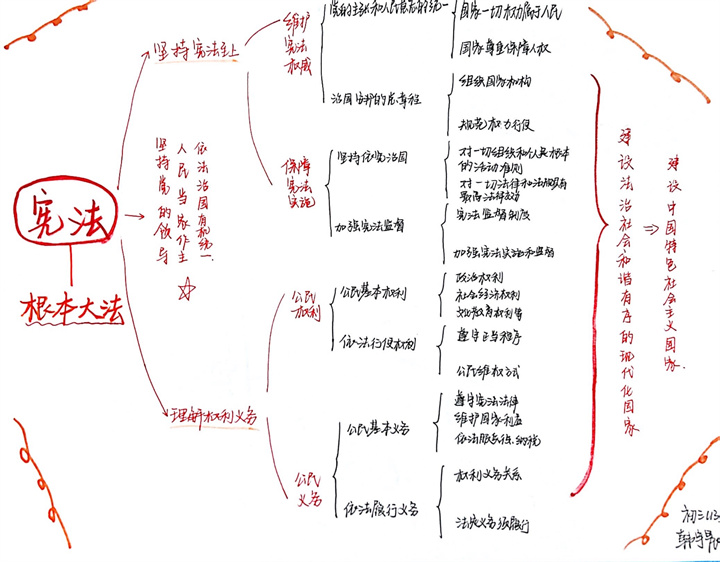 宪法
根本大法
坚持宪法至上
坚持党的领导
人民当家作主
依法治国有机统一
理解权利义务
维护
宪法
权威
党的主张和人民意志的统一
国家一切权力属于人民
国家尊重保障人权
治国安邦的总章程
组织国家机构
规范权力行使
保障
宪法
实施
坚持依宪治国
对一切组织和个人具根本
的活动准则
对一切法律和法规具有
最高法律效力
加强宪法监督
宪法监督制度
加强宪法实施和监督
公民
权利
公民基本权利
政治权利
社会经济权利
文化教育权利等
依法行使权利
遵守正当程序
公民维权方式
公民
义务
公民基本义务
遵守宪法法律
维护国家利益
依法服兵役.纳税
依法履行义务
权利义务关系
法定义务须履行
建设法治社会和谐有序的现代化国家
⇒
建设中国特色社会主义国家.
初三